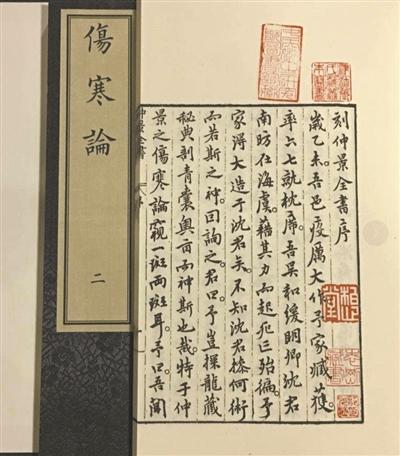 傷寒論
二
刻仲景全書序
歲乙未吾邑疫厲大作予家藏獲。
率六七就枕席。吾吳和緩明卿沈君
南昉在海虞。藉其力而起死亡殆徧。予
家得大造于沈君矣。不知沈君操何術
而若斯之神。因詢之。君曰予豈探龍藏
秘典剖青囊奧旨而神斯也哉。特于仲
景之傷寒論窺一斑兩斑耳予曰吾聞
仲景全書